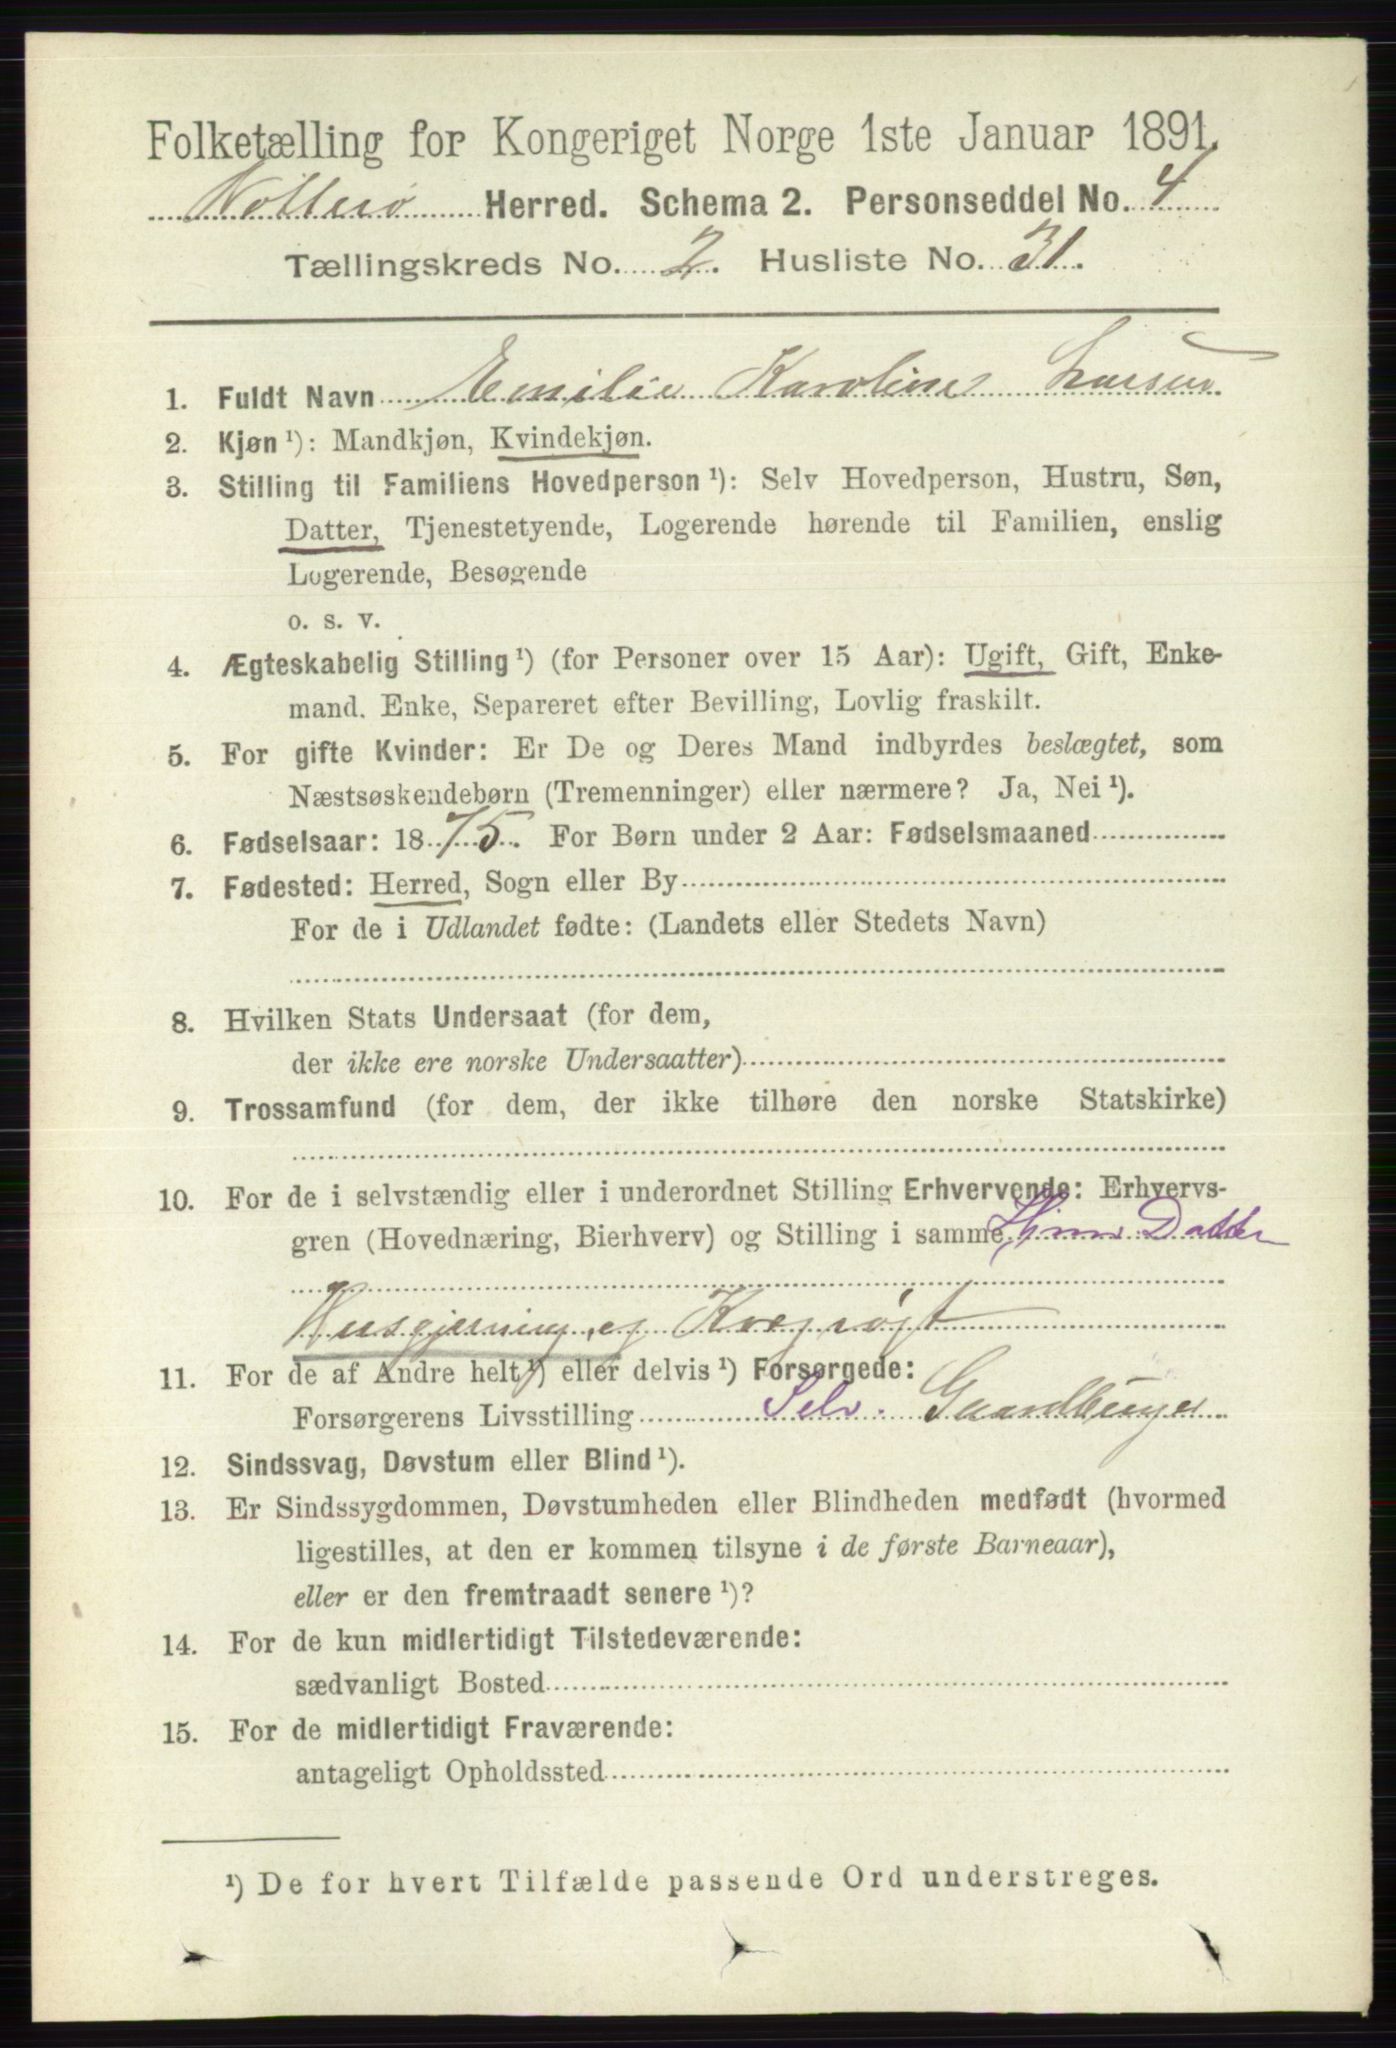 Folketælling for Kongeriget Norge 1ste Januar 1891.
Nøtterø Herred. Schema 2. Personseddel No. 4
Tællingskreds No. 2. Husliste No. 31.
1. Fuldt Navn Emilie Karoline Larsen
2. Kjøn ¹): Mandkjøn, Kvindekjøn.
3. Stilling til Familiens Hovedperson ¹): Selv Hovedperson, Hustru, Søn,
Datter, Tjenestetyende, Logerende hørende til Familien, enslig
Logerende, Besøgende
o. s. v.
4. Ægteskabelig Stilling ¹) (for Personer over 15 Aar): Ugift, Gift, Enke-
mand, Enke, Separeret efter Bevilling, Lovlig fraskilt.
5. For gifte Kvinder: Er De og Deres Mand indbyrdes beslægtet, som
Næstsøskendebørn (Tremenninger) eller nærmere? Ja, Nei ¹).
6. Fødselsaar: 1875. For Børn under 2 Aar: Fødselsmaaned
7. Fødested: Herred, Sogn eller By
For de i Udlandet fødte: (Landets eller Stedets Navn)
8. Hvilken Stats Undersaat (for dem,
der ikke ere norske Undersaatter)
9. Trossamfund (for dem, der ikke tilhøre den norske Statskirke)
10. For de i selvstændig eller i underordnet Stilling Erhvervende: Erhvervs-
gren (Hovednæring, Bierhverv) og Stilling i samme Hmv Datter
Husgjerning og Kvægrøgt
11. For de af Andre helt ¹) eller delvis ¹) Forsørgede:
Forsørgerens Livsstilling Selv. Gaardbruger
12. Sindssvag, Døvstum eller Blind ¹).
13. Er Sindssygdommen, Døvstumheden eller Blindheden medfødt (hvormed
ligestilles, at den er kommen tilsyne i de første Barneaar),
eller er den fremtraadt senere ¹)?
14. For de kun midlertidigt Tilstedeværende:
sædvanligt Bosted
15. For de midlertidigt Fraværende:
antageligt Opholdssted
¹) De for hvert Tilfælde passende Ord understreges.